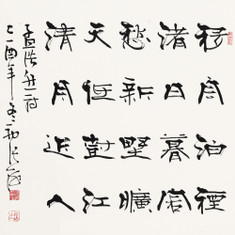 移舟泊煙
渚日暮客
愁新野曠
天低樹江
清月近人
孟浩然詩
乙酉年冬初